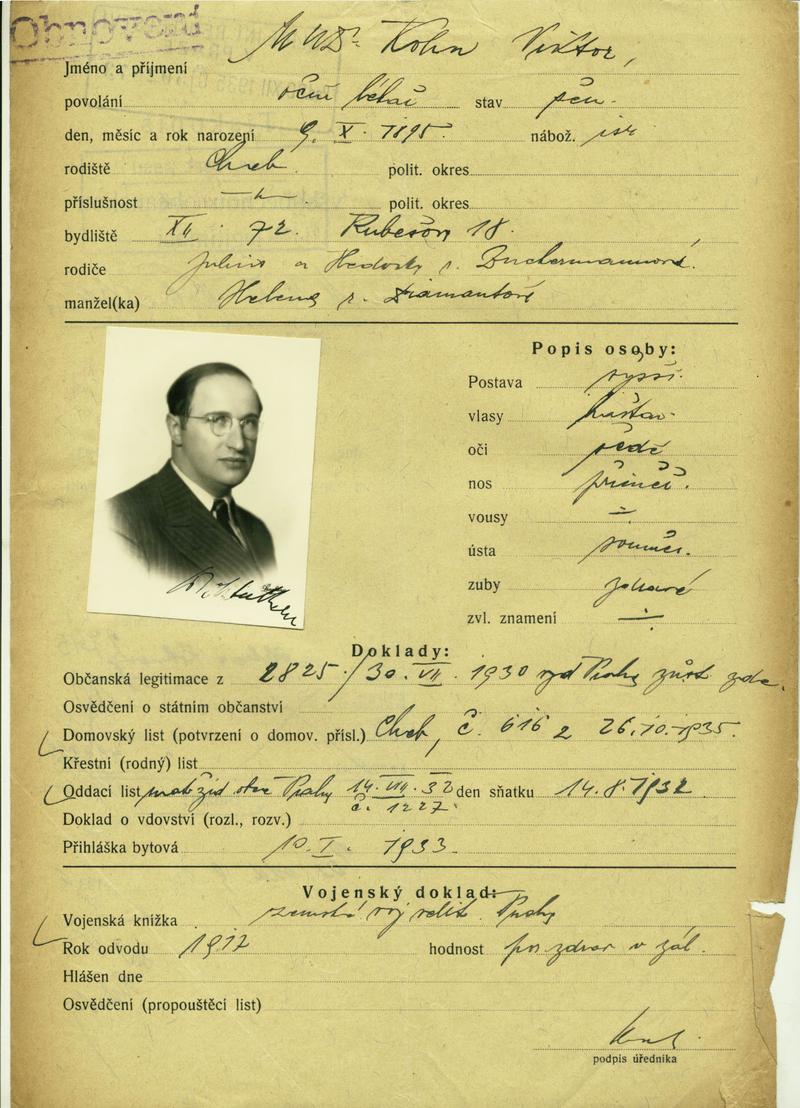 Obnovení
MUDr Kohn Viktor,
Jméno a příjmení
povolání oční lékař stav žen.
den, měsíc a rok narození 9. X. 1895. nábož. isr
rodiště Cheb. polit. okres
příslušnost —"—. polit. okres
bydliště XII. 72. Rubešov 18.
rodiče Julius a Hedvik r. Buchermannová.
manžel(ka) Helena r. Diamantová
Popis osoby:
Postava vyšší.
vlasy kaštan.
oči šedé
nos přiměř.
vousy ÷
ústa souměr.
zuby zdravé
zvl. znamení ÷
Doklady:
Občanská legitimace z 2825./30. VII. 1930 Prahy
Osvědčení o státním občanství
Domovský list (potvrzení o domov. přísl.) Cheb, č. 616 z 26.10.1935.
Křestní (rodný) list
Oddací list Prahy 14. VIII. 32 den sňatku 14.8.1932
č. 1227
Doklad o vdovství (rozl., rozv.)
Přihláška bytová 10. I. 1933.
Vojenský doklad:
Vojenská knížka zemské voj velit. Prahy
Rok odvodu 1917 hodnost por zdrav v zál.
Hlášen dne
Osvědčení (propouštěcí list)
podpis úředníka